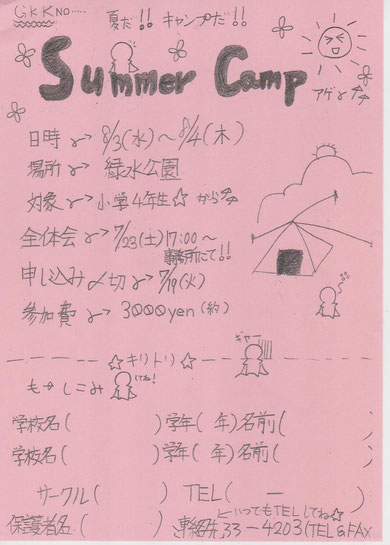 GKKNO.....
夏だ!! キャンプだ!!
Summer Camp
アゲ
日時→8/3(水)～8/4(木)
場所→緑水公園
対象→小学4年生☆から
全体会→7/23(土)17:00～
事務所にて!!
申し込み〆切→7/19(火)
参加費→3000yen(約)
ギャー
☆キリトリ☆
もうしこみ
けね!
学校名( )学年( 年)名前( )
学校名( )学年( 年)名前( )
サークル( ) TEL( ー )
←いつでもTELしてね☆
保護者名( ) 連絡先33-4203(TEL&FAX